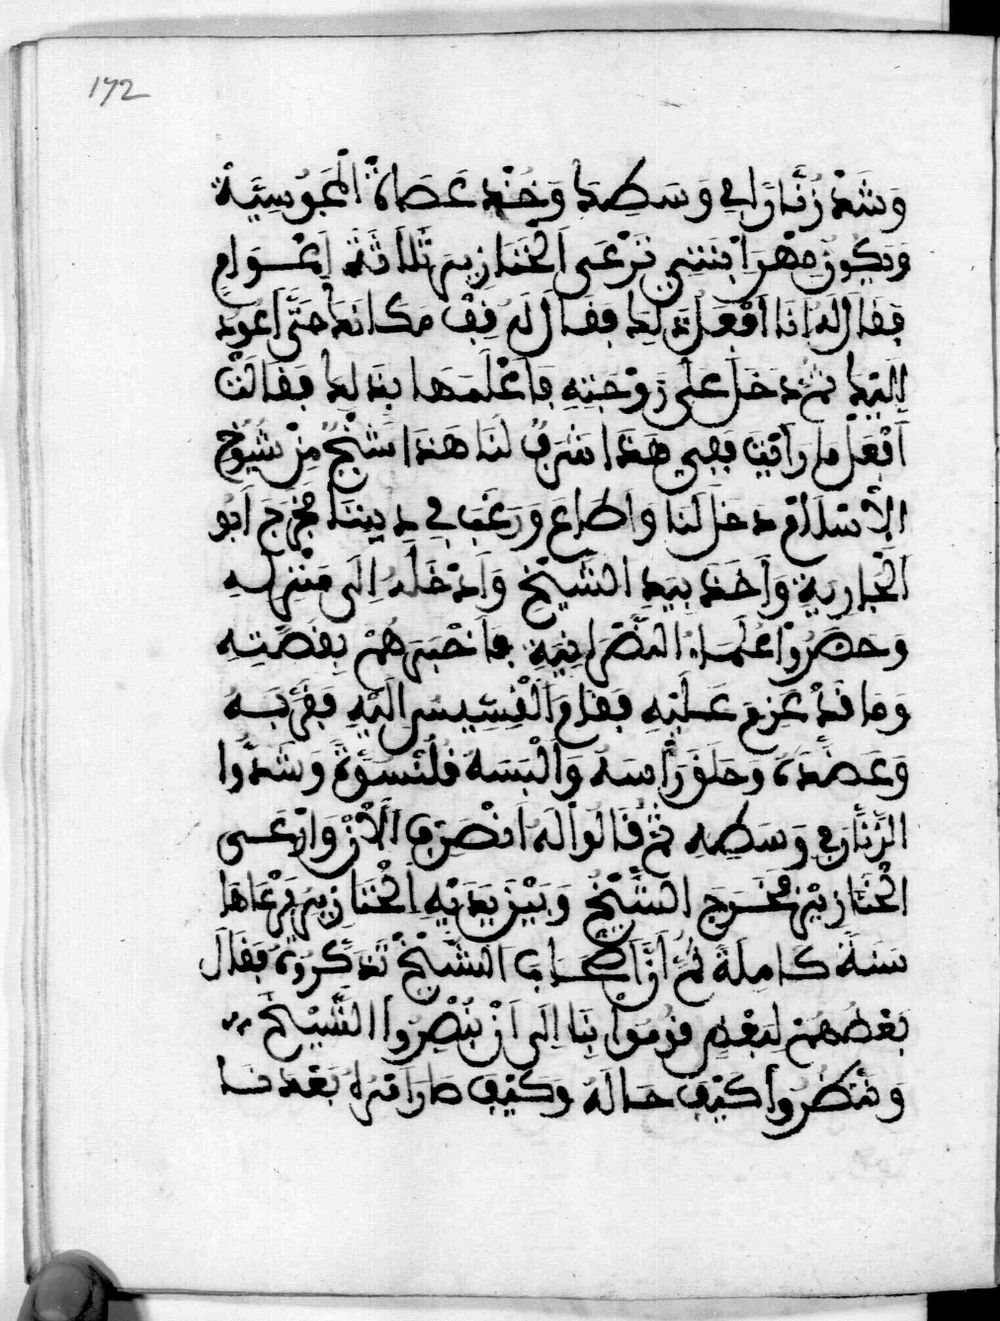 172
وَشَدْ زُنَّارًا فِي وَسَطِكَ وَخُذْ عَصَاةْ الْمَجُوسِيَّةْ
وَيَكُونْ مَهْرَ ابْنَتِي تَرْعَى الْخَنَازِيرَ ثَلَاثَةَ اَعْـوَامٍ
فَقَالَ لَهُ اَنَا اَفْعَلُ ذَلِكَ فَقَـالَ لَهُ قِفْ مَكَانَكَ حَتَّى اَعُودَ
اِلَيْكَ ثُمَّ دَخَلَ عَلَى زَوْجَتِهِ فَاَعْلَمَهَا بِذَلِكَ فَقَالَتْ
اَفْعَلْ مَا رَاَيْتَ فَفِي هَذَا شَرَفٌ لَنَا هَذَا شَيْخٌ مِنْ شُيُوخِ
الْاِسْلَامِ دَخَلَ لَنَا وَاطَاعَ وَرَغَبَ فِي دِينِنَا فَخَرَجَ اَبُو
الْجَارِيَةِ وَاَخَذَ بِيَدِ الشَّيْخِ وَاَدْخَلَهُ اِلَى مَنْزِلِهِ
وَحَضَرُوا عُلَمَـاءُ النَّصْرَانِيَةِ فَاَخْبَرَهُمْ بِقِصَّتِهِ
وَمَا قَدْ عَزِمَ عَـلَيْهِ فَقَامَ الْقِسِّيسُ اِلَيْهِ فَقَرَّبَـهُ
وَعَضَّدَهُ وَحَلَقَ رَأْسَهُ وَالْبَسَهُ قُلُنْسُوَةً وَشَدُّوا
الزُّنَّارَ فِي وَسَطِهِ ثُمَّ قَالُوا لَهُ اَنْصَرِفْ الْاَنْ وَارْعَـى
الْخَنَازِيْرَ فَخَـرَجَ الشَّيْخُ وَبَيْنَ يَدَيْهِ الْخَنَازِيرَ يَرْعَاهَا
سَنَةً كَامِلَةً ثُمَّ اَنَّ اَصْحَـابَ الشَّيْخِ تَذَكَّرُوهُ فَقَالَ
بَعْضُهُمْ لِبَعْضٍ قُومُوا بِنَا اِلَى اَنْ نُبْصِرُوا الشَّيْخَ
وَنَنْظُرُوا كَيْفَ حَـالَهُ وَكَيْفَ صَارَ اَمْرُهُ بَعْدَنَـا